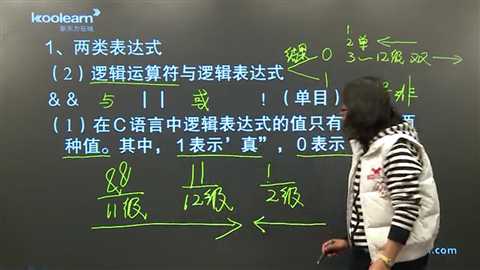 koolearn
新东方在线
1、两类表达式
（2）逻辑运算符与逻辑表达式
结果 0
1
1
2 单
3 12级 双
&& 与 || 或 !（单目） 非
（1）在C语言中逻辑表达式的值只有
种值。其中，1表示'真"，0表示
&& || !
11级 12级 2级
.com